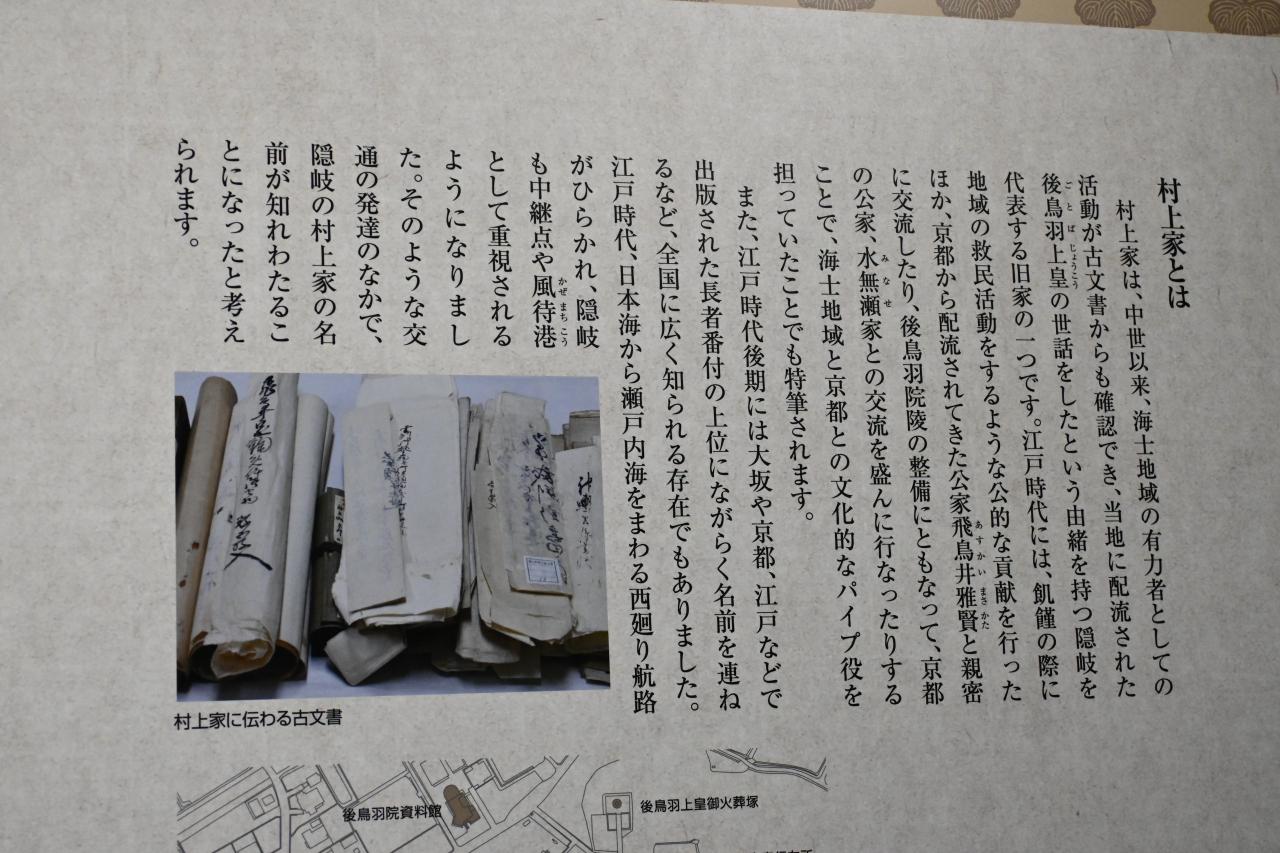 村上家とは
村上家は、中世以来、海士地域の有力者としての
活動が古文書からも確認でき、当地に配流された
後鳥羽上皇の世話をしたという由緒を持つ隠岐を
ごとばじょうこう
代表する旧家の一つです。江戸時代には、飢饉の際に
地域の救民活動をするような公的な貢献を行った
ほか、京都から配流されてきた公家飛鳥井雅賢と親密
あすかいまさかた
に交流したり、後鳥羽院陵の整備にともなって、京都
の公家、水無瀬家との交流を盛んに行なったりする
みなせ
ことで、海士地域と京都との文化的なパイプ役を
担っていたことでも特筆されます。
また、江戸時代後期には大坂や京都、江戸などで
出版された長者番付の上位にながらく名前を連ね
るなど、全国に広く知られる存在でもありました。
江戸時代、日本海から瀬戸内海をまわる西廻り航路
がひらかれ、隠岐
も中継点や風待港
かぜまちこう
として重視される
ようになりまし
た。そのような交
通の発達のなかで、
隠岐の村上家の名
前が知れわたるこ
とになったと考え
られます。
村上家に伝わる古文書
後鳥羽院資料館
後鳥羽上皇御火葬塚